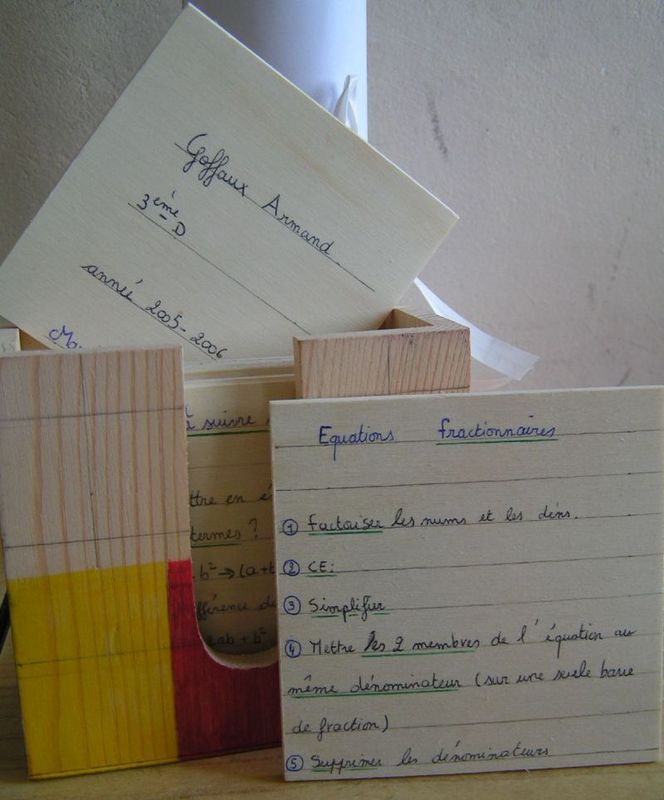 Goffaux Armand
3ème D
année 2005-2006
à suivre
ttre en é
termes ?
b² → (a+b
fférence de
ab + b²
Equations fractionnaires
① Factoriser les nums et les déns.
② CE:
③ Simplifier
④ Mettre les 2 membres de l'équation au
même dénominateur (sur une seule barre
de fraction)
⑤ Supprimer les dénominateurs